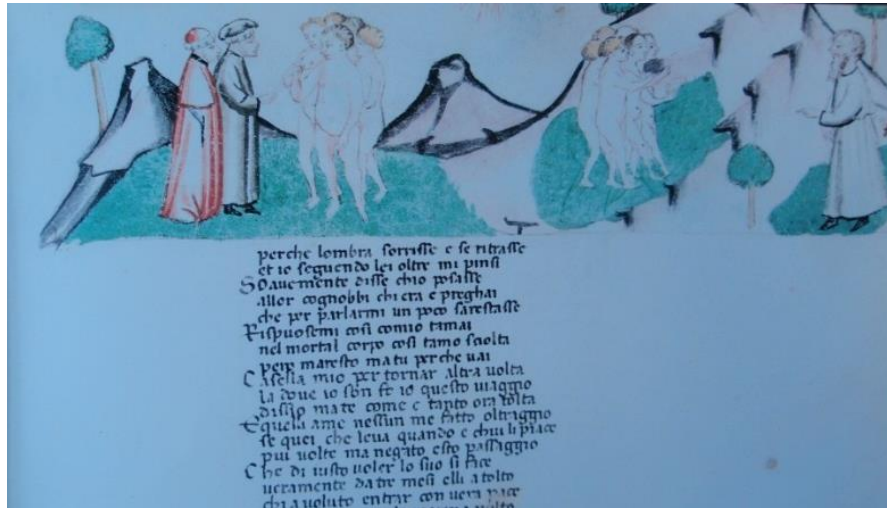 perche lombra sorrisse e se ritrasse
et io seguendo lei oltre mi pinsi
Soauemente disse chio posasse
allor cognobbi chi era e preghai
che per parlarmi un poco sarestasse
Rispuosemi cosi comio tamai
nel mortal corpo cosi tamo sciolta
pero maresto ma tu perche uai
Casella mio per tornar altra uolta
la doue io son fo io questo uiaggio
dissio ma te come e tanto ora tolta
Equeli ame nessun me fatto oltraggio
se quei che leua quando e chiui li piace
piui uolte ma negato esto passaggio
Che di iusto uoler lo suo si face
ueramente da tre mesi elli a tolto
chi a uoluto entrar con uera pace